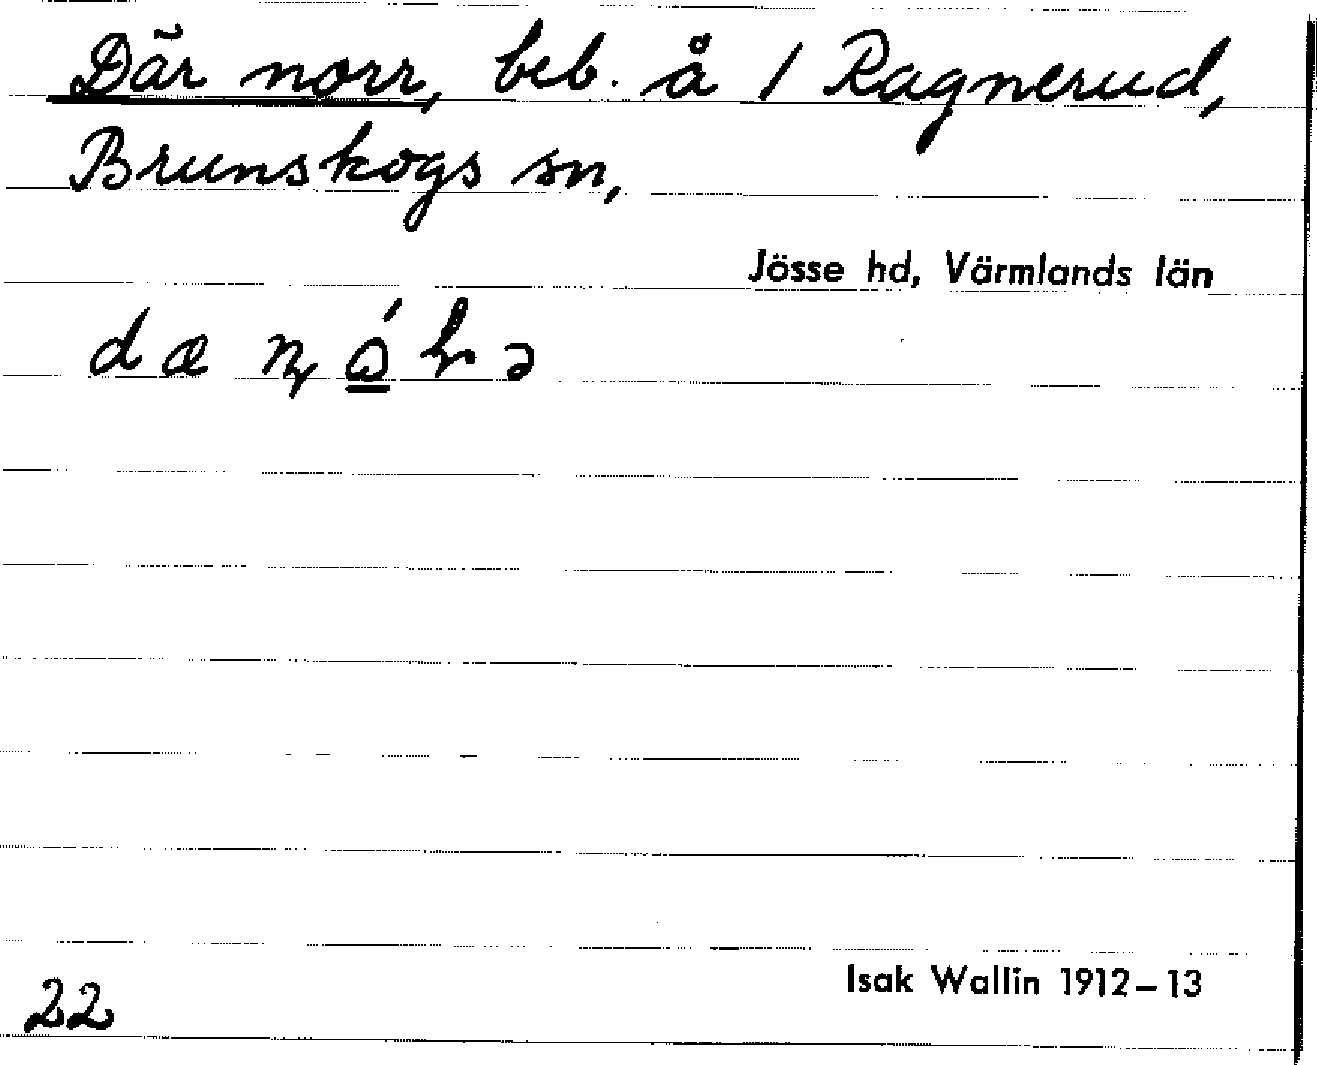 Där norr, beb. å 1 Ragnerud,
Brunskogs sn,
Jösse hd, Värmlands län
22
Isak Wallin 1912–13